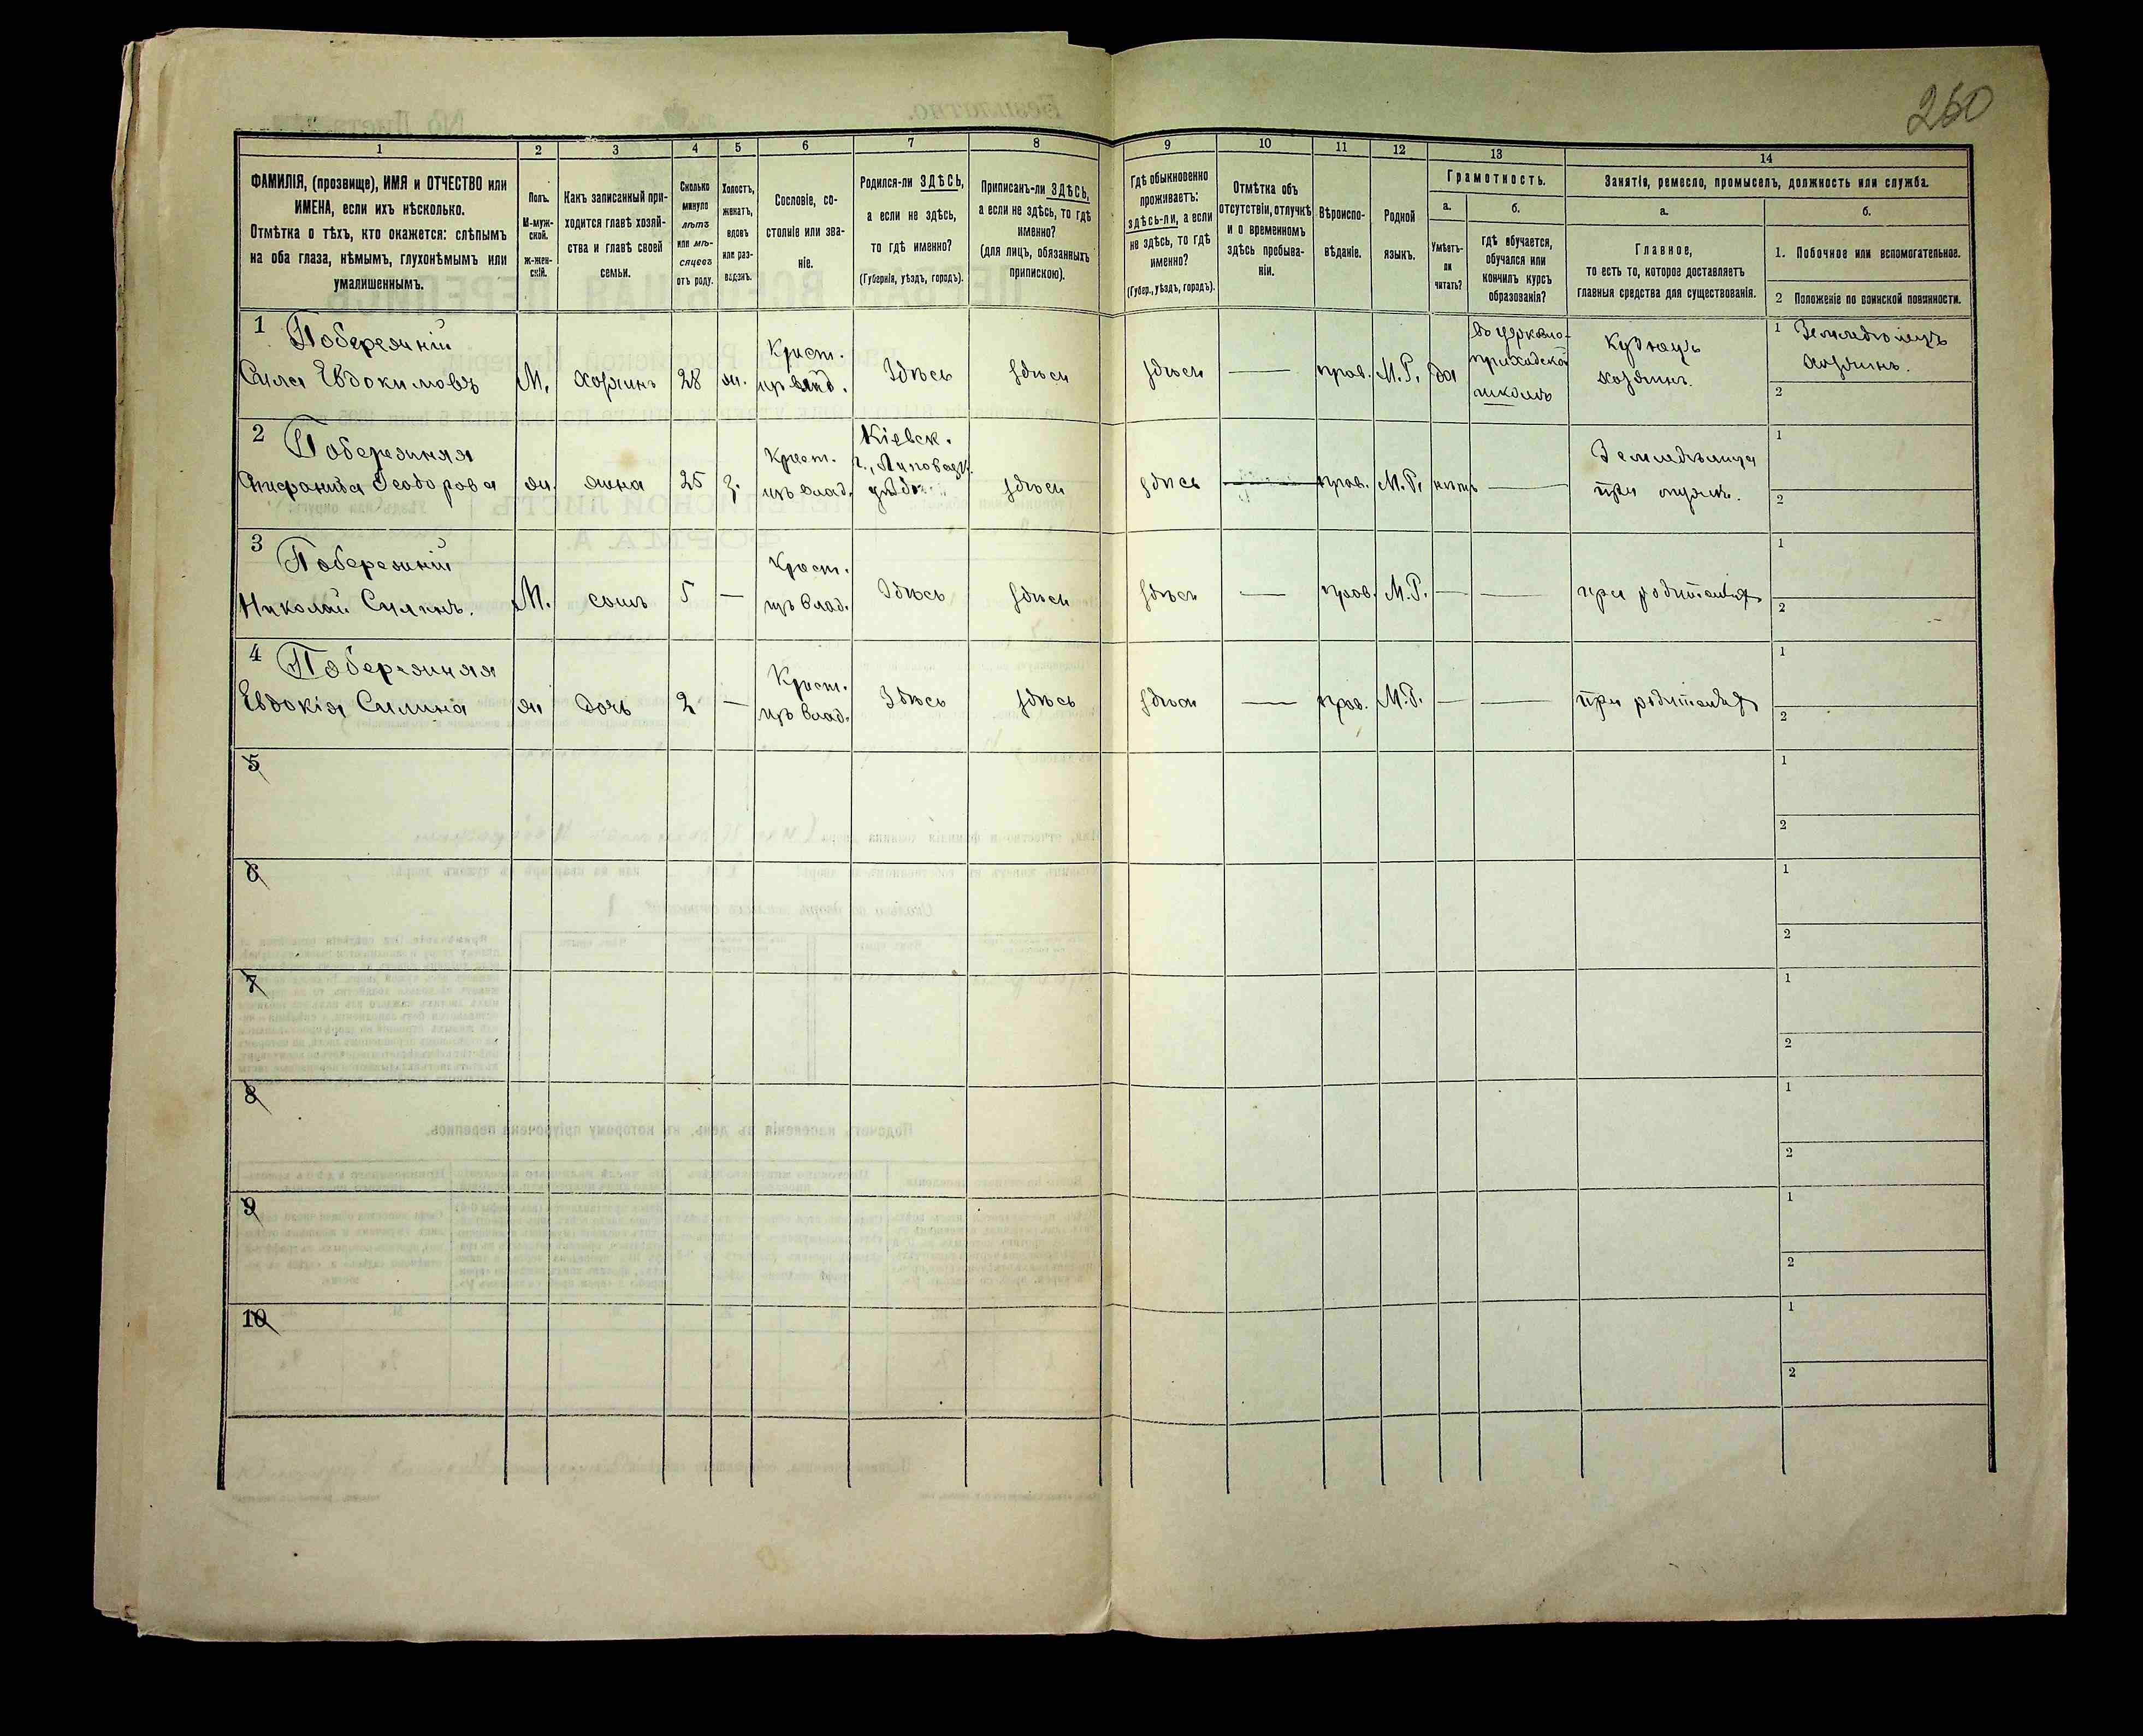 260
1
2
3
4
5
6
7
8
9
10
11
12
13
14
ФАМИЛІЯ, (прозвище), ИМЯ и ОТЧЕСТВО или
ИМЕНА, если ихъ нѣсколько.
Отмѣтка о тѣхъ, кто окажется: слѣпымъ
на оба глаза, нѣмымъ, глухонѣмымъ или
умалишеннымъ.
Полъ.
М-муж-
ской.
ж-жен-
скій.
Какъ записанный при-
ходится главѣ хозяй-
ства и главѣ своей
семьи.
Сколько
минуло
лѣтъ
или мѣ-
сяцевъ
отъ роду.
Холостъ,
женатъ,
вдовъ
или раз-
веденъ.
Сословіе, со-
стояніе или зва-
ніе.
Родился-ли ЗДѢСЬ,
а если не здѣсь,
то гдѣ именно?
(Губернія, уѣздъ, городъ).
Приписанъ-ли ЗДѢСЬ,
а если не здѣсь, то гдѣ
именно?
(для лицъ, обязанныхъ
припискою).
Гдѣ обыкновенно
проживаетъ:
здѣсь-ли, а если
не здѣсь, то гдѣ
именно?
(Губер., уѣздъ, городъ).
Отмѣтка объ
отсутствіи, отлучкѣ
и о временномъ
здѣсь пребыва-
ніи.
Вѣроиспо-
вѣданіе.
Родной
языкъ.
Грамотность.
а.
Умѣетъ-
ли
читать?
б.
гдѣ обучается,
обучался или
кончилъ курсъ
образованія?
Занятіе, ремесло, промыселъ, должность или служба.
а.
Главное,
то есть то, которое доставляетъ
главныя средства для существованія.
б.
1. Побочное или вспомогательное.
2 Положеніе по воинской повинности.
1 Побережній
Сила Евдокимовъ
М.
хозяинъ
28
ж.
Крест.
изъ влад.
Здѣсь
здѣсь
здѣсь
прав.
М.Р.
да
въ церковно-
приходской
школѣ
Кузнецъ
хозяинъ.
1 Земледѣлецъ
хозяинъ.
2
2 Побережняя
Феодорова
ж.
жена
25
з.
Крест.
изъ влад.
Кіевск.
г., Липовецк.
здѣсь
здѣсь
прав.
М.Р.
нѣтъ
Земледѣлица
при мужѣ.
1
2
3 Побережній
Николай Силинъ.
М.
сынъ
5
Крест.
изъ влад.
Здѣсь
здѣсь
здѣсь
прав.
М.Р.
при родителяхъ
1
2
4 Побережняя
Евдокія Силина
ж
дочь
2
Крест.
изъ влад.
Здѣсь
здѣсь
здѣсь
прав.
М.Р.
при родителяхъ
1
2
5
1
2
6
1
2
7
1
2
8
1
2
9
1
2
10
1
2